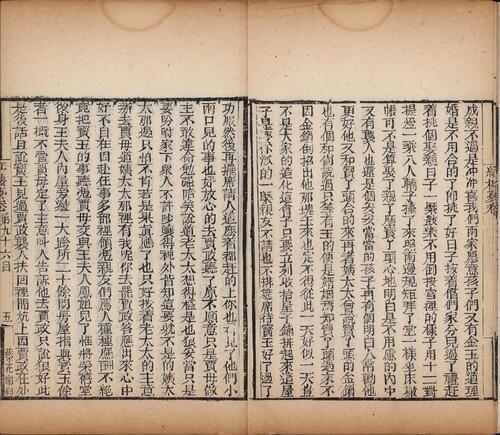 成親不過是冲冲喜我們兩家愿意孩子們又有金玉的道理
婚是不用合的了卽挑了好日子按着偺們家分兒過了禮赶
着挑個娶親日子一槩鼓樂不用倒按宮裡的樣子用十二對
提燈一乘八人轎子擡了來照南邊規矩拜了堂一樣坐床撒
帳可不是算娶了親了麽寶丫頭心地明白是不用慮的內中
又有襲人也還是個妥妥當當的孩子再有個明白人常勸他
更好他又和寶丫頭合的來再者姨太太曾說寶丫頭的金鎖
也有個和尚說過只等有玉的便是婚姻焉知寶丫頭過來不
因金鎖倒招出他那塊玉來也定不得從此一天好似一天豈
不是大家的造化這會子只要立刻收拾屋子鋪排起來這屋
子是要你派的一槩親友不請也不排筵席待寶玉好了過了
功服然後再擺席請人這麽着都赶的上你也看見了他們小
兩口兒的事也好放心的去賈政聽了原不愿意只是賈母做
主不敢違命勉強陪笑說道老太太想得極是也很妥當只是
要吩咐家下衆人不許吵嚷得裡外皆知這要躭不是的姨太
太那邊只怕不肯若是果眞應了也只好按着老太太的主意
辦去賈母道姨太太那裡有我呢你去罷賈政答應出來心中
好不自在因赴任事多部裡領憑親友們薦人種種應酬不絕
竟把寶玉的事聽憑賈母交與王夫人鳳姐兒了惟將榮禧堂
後身王夫人內屋旁邊一大跨所二十餘間房屋指與寶玉餘
者一槩不管賈母定了主意叫人告訴他去賈政只說很好此
是後話且說寶玉見過賈政襲人扶回裡間炕上因賈政在外
第九十六回
五